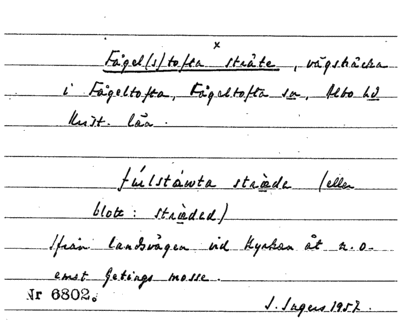 x
Fågel(s)tofta stråte, vägsträcka
i Fågeltofta, Fågeltofta sn, Albo hd
Krist. län.
fúlstáwta stræde (eller
blott: strædед)
från landsvägen vid Kyrkan åt n.o.
emot Getings mosse.
Nr 6802.
S. Ingers 1957.